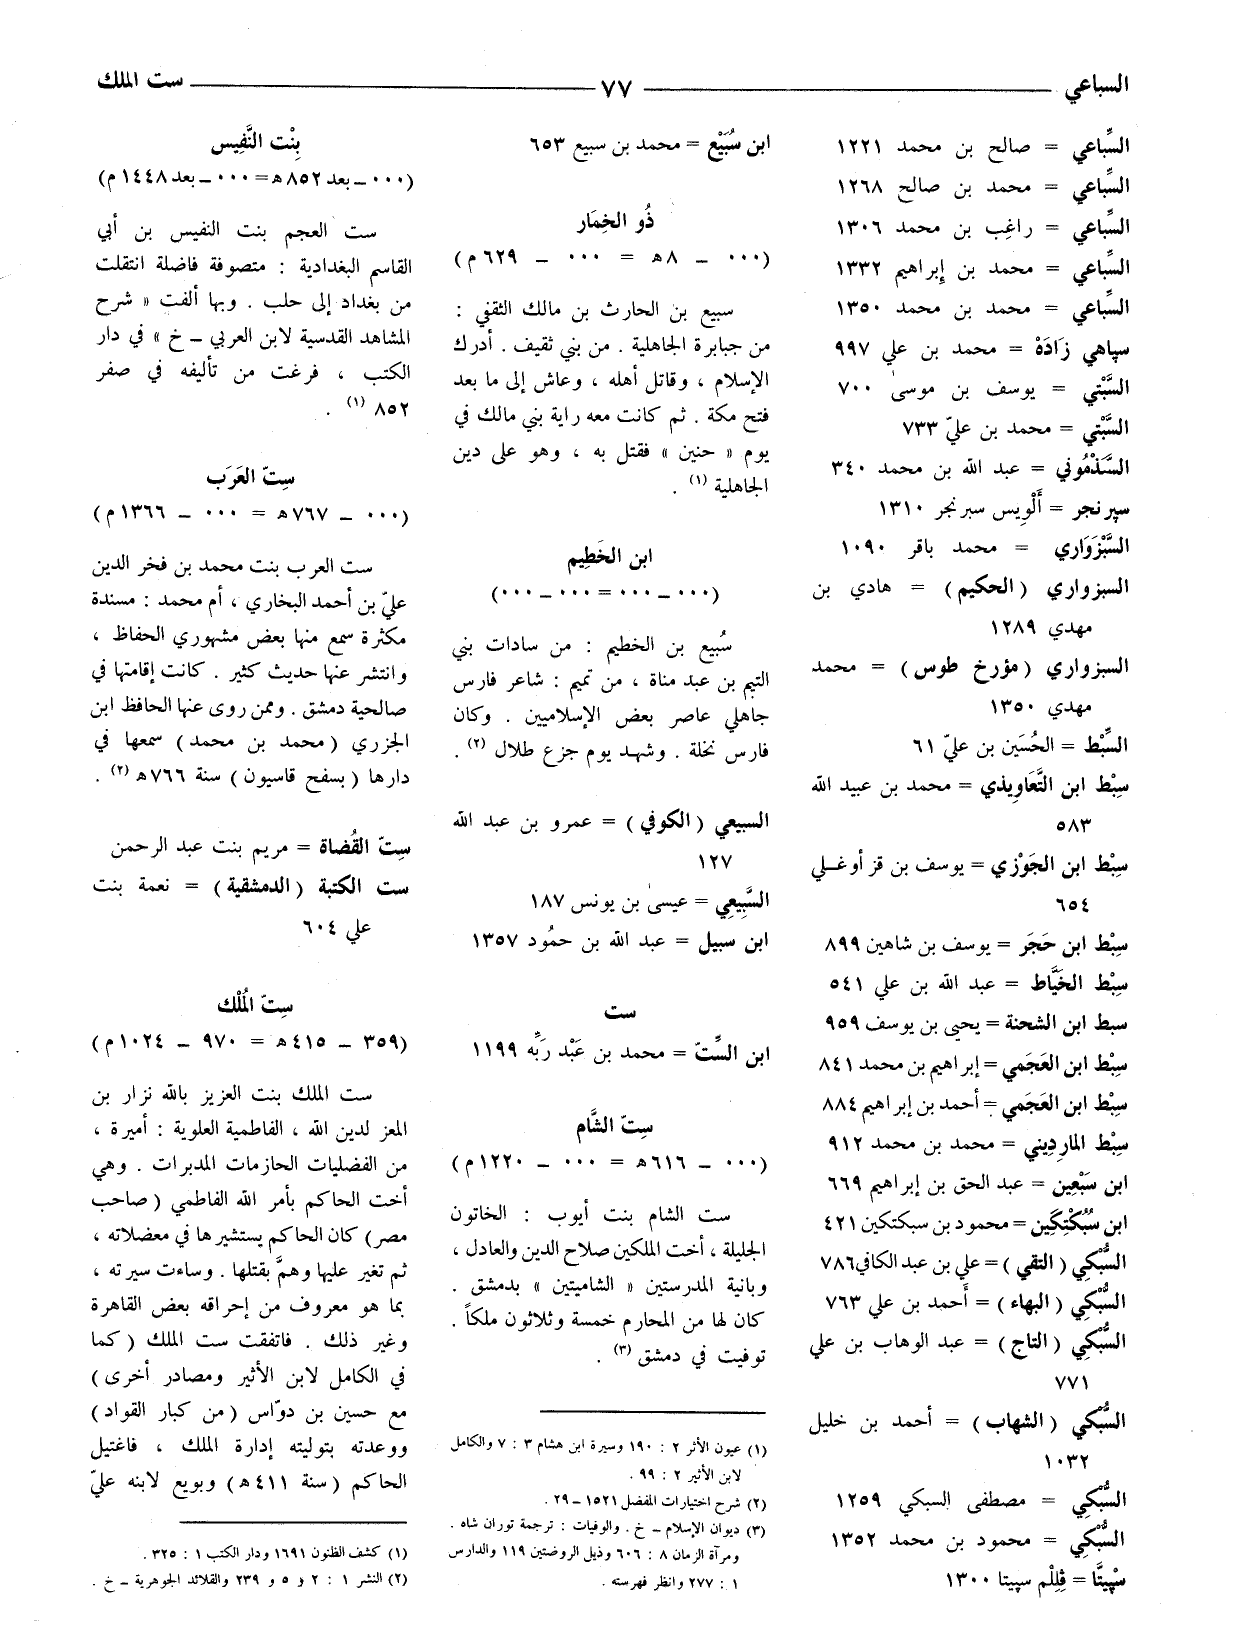 السباعي ٧٧ ست الملك
السِّباعي = صالح بن محمد ١٢٢١
السِّباعي = محمد بن صالح ١٢٦٨
السِّباعي = راغِب بن محمد ١٣٠٦
السِّباعي = محمد بن إبراهيم ١٣٣٢
السِّباعي = محمد بن محمد ١٣٥٠
سپاهي زَادَهْ = محمد بن علي ٩٩٧
السَّبْتي = يوسف بن موسىٰ ٧٠٠
السَّبْتي = محمد بن عليّ ٧٣٣
السَّبَذْمُوني = عبد الله بن محمد ٣٤٠
سپرنجر = أَلْويس سبرنجر ١٣١٠
السَّبْزَوَاري = محمد باقر ١٠٩٠
السبزواري (الحكيم) = هادي بن
مهدي ١٢٨٩
السبزواري (مؤرخ طوس) = محمد
مهدي ١٣٥٠
السِّبْط = الحُسَين بن عليّ ٦١
سِبْط ابن التَّعَاوِيذي = محمد بن عبيد الله
٥٨٣
سِبْط ابن الجَوْزي = يوسف بن قز أوغلي
٦٥٤
سِبْط ابن حَجَر = يوسف بن شاهين ٨٩٩
سِبْط الخَيَّاط = عبد الله بن علي ٥٤١
سبط ابن الشحنة = يحيى بن يوسف ٩٥٩
سِبْط ابن العَجَمي = إبراهيم بن محمد ٨٤١
سِبْط ابن العَجَمي = أحمد بن إبراهيم ٨٨٤
سِبْط المارِديني = محمد بن محمد ٩١٢
ابن سَبْعِين = عبد الحق بن إبراهيم ٦٦٩
ابن سُبُكْتِكِين = محمود بن سبكتكين ٤٢١
السُّبْكي (التقي) = علي بن عبد الكافي ٧٨٦
السُّبْكي (البهاء) = أَحمد بن علي ٧٦٣
السُّبْكي (التاج) = عبد الوهاب بن علي
٧٧١
السُّبْكي (الشهاب) = أحمد بن خليل
١٠٣٢
السُّبْكي = مصطفى السبكي ١٢٥٩
السُّبْكي = محمود بن محمد ١٣٥٢
سْپِيتَّا = ڤِلِلْم سپيتا ١٣٠٠
ابن سُبَيْع = محمد بن سبيع ٦٥٣
ذُو الخِمَار
(٠٠٠ ــ ٨ه = ٠٠٠ ــ ٦٢٩ م)
سبيع بن الحارث بن مالك الثقفي :
من جبابرة الجاهلية . من بني ثقيف . أدرك
الإسلام ، وقاتل أهله ، وعاش إلى ما بعد
فتح مكة . ثم كانت معه راية بني مالك في
يوم « حنين » فقتل به ، وهو على دين
الجاهلية (١) .
ابن الخَطِيم
(٠٠٠ ــ ٠٠٠ = ٠٠٠ ــ ٠٠٠)
سُبيع بن الخطيم : من سادات بني
التيم بن عبد مناة ، من تميم : شاعر فارس
جاهلي عاصر بعض الإسلاميين . وكان
فارس نخلة . وشهد يوم جزع طلال (٢) .
السبيعي (الكوفي) = عمرو بن عبد الله
١٢٧
السَّبِيعِي = عيسىٰ بن يونس ١٨٧
ابن سبيل = عبد الله بن حمُود ١٣٥٧
ست
ابن السِّتّ = محمد بن عَبْد رَبِّه ١١٩٩
سِتّ الشَّام
(٠٠٠ ــ ٦١٦ه = ٠٠٠ ــ ١٢٢٠ م)
ست الشام بنت أيوب : الخاتون
الجليلة ، أخت الملكين صلاح الدين والعادل ،
وبانية المدرستين « الشاميتين » بدمشق .
كان لها من المحارم خمسة وثلاثون ملكاً .
توفيت في دمشق (٣) .
(١) عيون الأثر ٢ : ١٩٠ وسيرة ابن هشام ٣ : ٧ والكامل
لابن الأثير ٢ : ٩٩ .
(٢) شرح اختيارات المفضل ١٥٢١ ــ ٢٩ .
(٣) ديوان الإسلام ــ خ . والوفيات : ترجمة توران شاه .
ومرآة الزمان ٨ : ٦٠٦ وذيل الروضتين ١١٩ والدارس
١ : ٢٧٧ وانظر فهرسته .
بِنْت النَّفِيس
(٠٠٠ ــ بعد ٨٥٢ ه = ٠٠٠ ــ بعد ١٤٤٨ م)
ست العجم بنت النفيس بن أبي
القاسم البغدادية : متصوفة فاضلة انتقلت
من بغداد إلى حلب . وبها ألفت « شرح
المشاهد القدسية لابن العربي ــ خ » في دار
الكتب ، فرغت من تأليفه في صفر
٨٥٢ (١) .
سِتّ العَرَب
(٠٠٠ ــ ٧٦٧ ه = ٠٠٠ ــ ١٣٦٦ م)
ست العرب بنت محمد بن فخر الدين
عليّ بن أحمد البخاري ، أم محمد : مسندة
مكثرة سمع منها بعض مشهوري الحفاظ ،
وانتشر عنها حديث كثير . كانت إقامتها في
صالحية دمشق . وممن روى عنها الحافظ ابن
الجزري (محمد بن محمد) سمعها في
دارها (بسفح قاسيون) سنة ٧٦٦ ه (٢) .
سِتّ القُضاة = مريم بنت عبد الرحمن
ست الكتبة (الدمشقية) = نعمة بنت
علي ٦٠٤
سِتّ المُلْك
(٣٥٩ ــ ٤١٥ ه = ٩٧٠ ــ ١٠٢٤ م)
ست الملك بنت العزيز بالله نزار بن
المعز لدين الله ، الفاطمية العلوية : أميرة ،
من الفضليات الحازمات المدبرات . وهي
أخت الحاكم بأمر الله الفاطمي (صاحب
مصر) كان الحاكم يستشيرها في معضلاته ،
ثم تغير عليها وهمَّ بقتلها . وساءت سيرته ،
بما هو معروف من إحراقه بعض القاهرة
وغير ذلك . فاتفقت ست الملك (كما
في الكامل لابن الأثير ومصادر أخرى)
مع حسين بن دوّاس (من كبار القواد)
ووعدته بتوليته إدارة الملك ، فاغتيل
الحاكم (سنة ٤١١ ه) وبويع لابنه عليّ
(١) كشف الظنون ١٦٩١ ودار الكتب ١ : ٣٢٥ .
(٢) النشر ١ : ٢ و ٥ و ٢٣٩ والقلائد الجوهرية ــ خ .